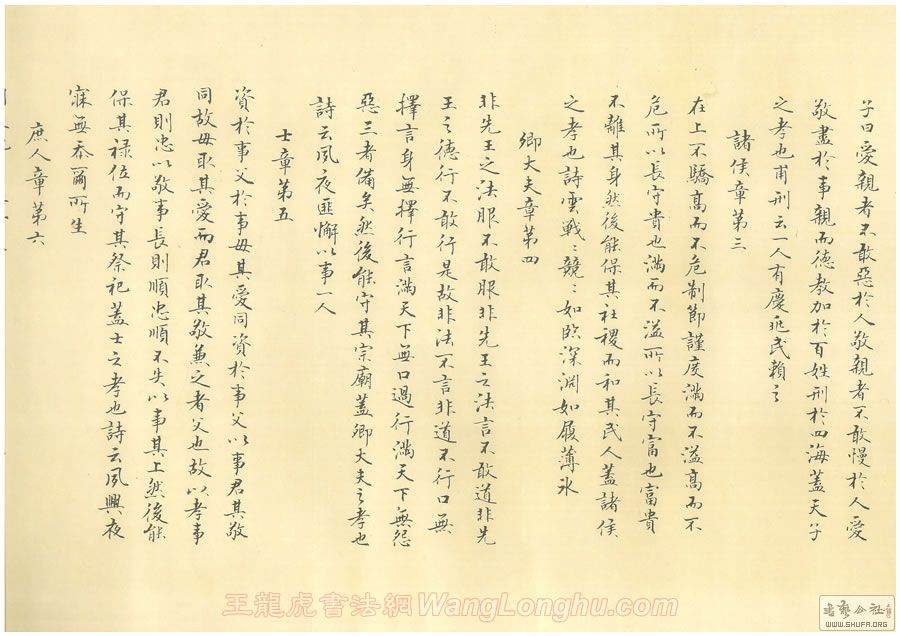 子曰愛親者不敢惡於人敬親者不敢慢於人愛
敬盡於事親而德教加於百姓刑於四海蓋天子
之孝也甫刑云一人有慶兆民賴之
諸侯章第三
在上不驕高而不危制節謹度滿而不溢高而不
危所以長守貴也滿而不溢所以長守富也富貴
不離其身然後能保其社稷而和其民人蓋諸侯
之孝也詩雲戰〻兢〻如臨深淵如履薄冰
卿大夫章第四
非先王之法服不敢服非先王之法言不敢道非先
王之德行不敢行是故非法不言非道不行口無
擇言身無擇行言滿天下無口過行滿天下無怨
惡三者備矣然後能守其宗廟蓋卿大夫之孝也
詩云夙夜匪懈以事一人
士章第五
資於事父於事母其愛同資於事父以事君其敬
同故母取其愛而君取其敬兼之者父也故以孝事
君則忠以敬事長則順忠順不失以事其上然後能
保其祿位而守其祭祀蓋士之孝也詩云夙興夜
寐無忝爾所生
庶人章第六
王龍虎書法網WangLonghu.com
書藝公社
www.SHUFA.ORG